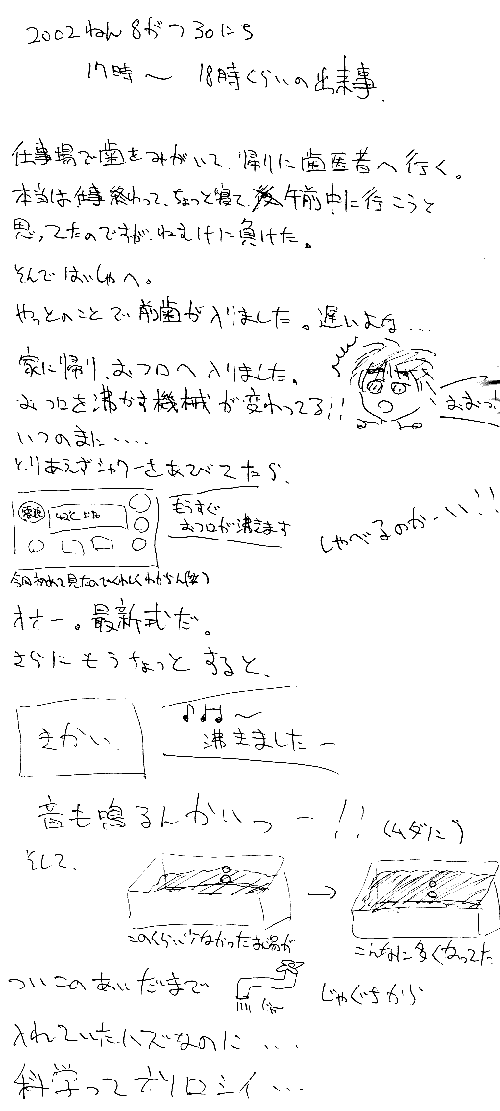 2002ねん8がつ30にち
17時〜 18時くらいの出来事.
仕事場で歯をみがいて、帰りに歯医者へ行く。
本当は仕事終わって、ちょっと寝て、午前中に行こうと
思ってたのですが、ねむけに負けた。
そんで はいしゃへ。
やっとのことで前歯が入りました。遅いよな...
家に帰り、おフロへ入りました。
おフロを沸かす機械が変わってる!!
おおっ
いつのまに....
とりあえずシャワーをあびてたら、
もうすぐ
おフロが沸きます
しゃべるのかーい!!
今日初めて見たのでくわしくわからん(笑)
オさー。最新式だ。
さらにもうちょっとすると、
きかい
♪♫〜
沸きましたー
音も鳴るんかいっー!!
(ムダに)
そして、
このくらい少なかったお湯が
→
こんなに多くなってた
ついこのあいだまで
じゃー
じゃぐちから
入れていたハズなのに...
科学ってオソロシイ...